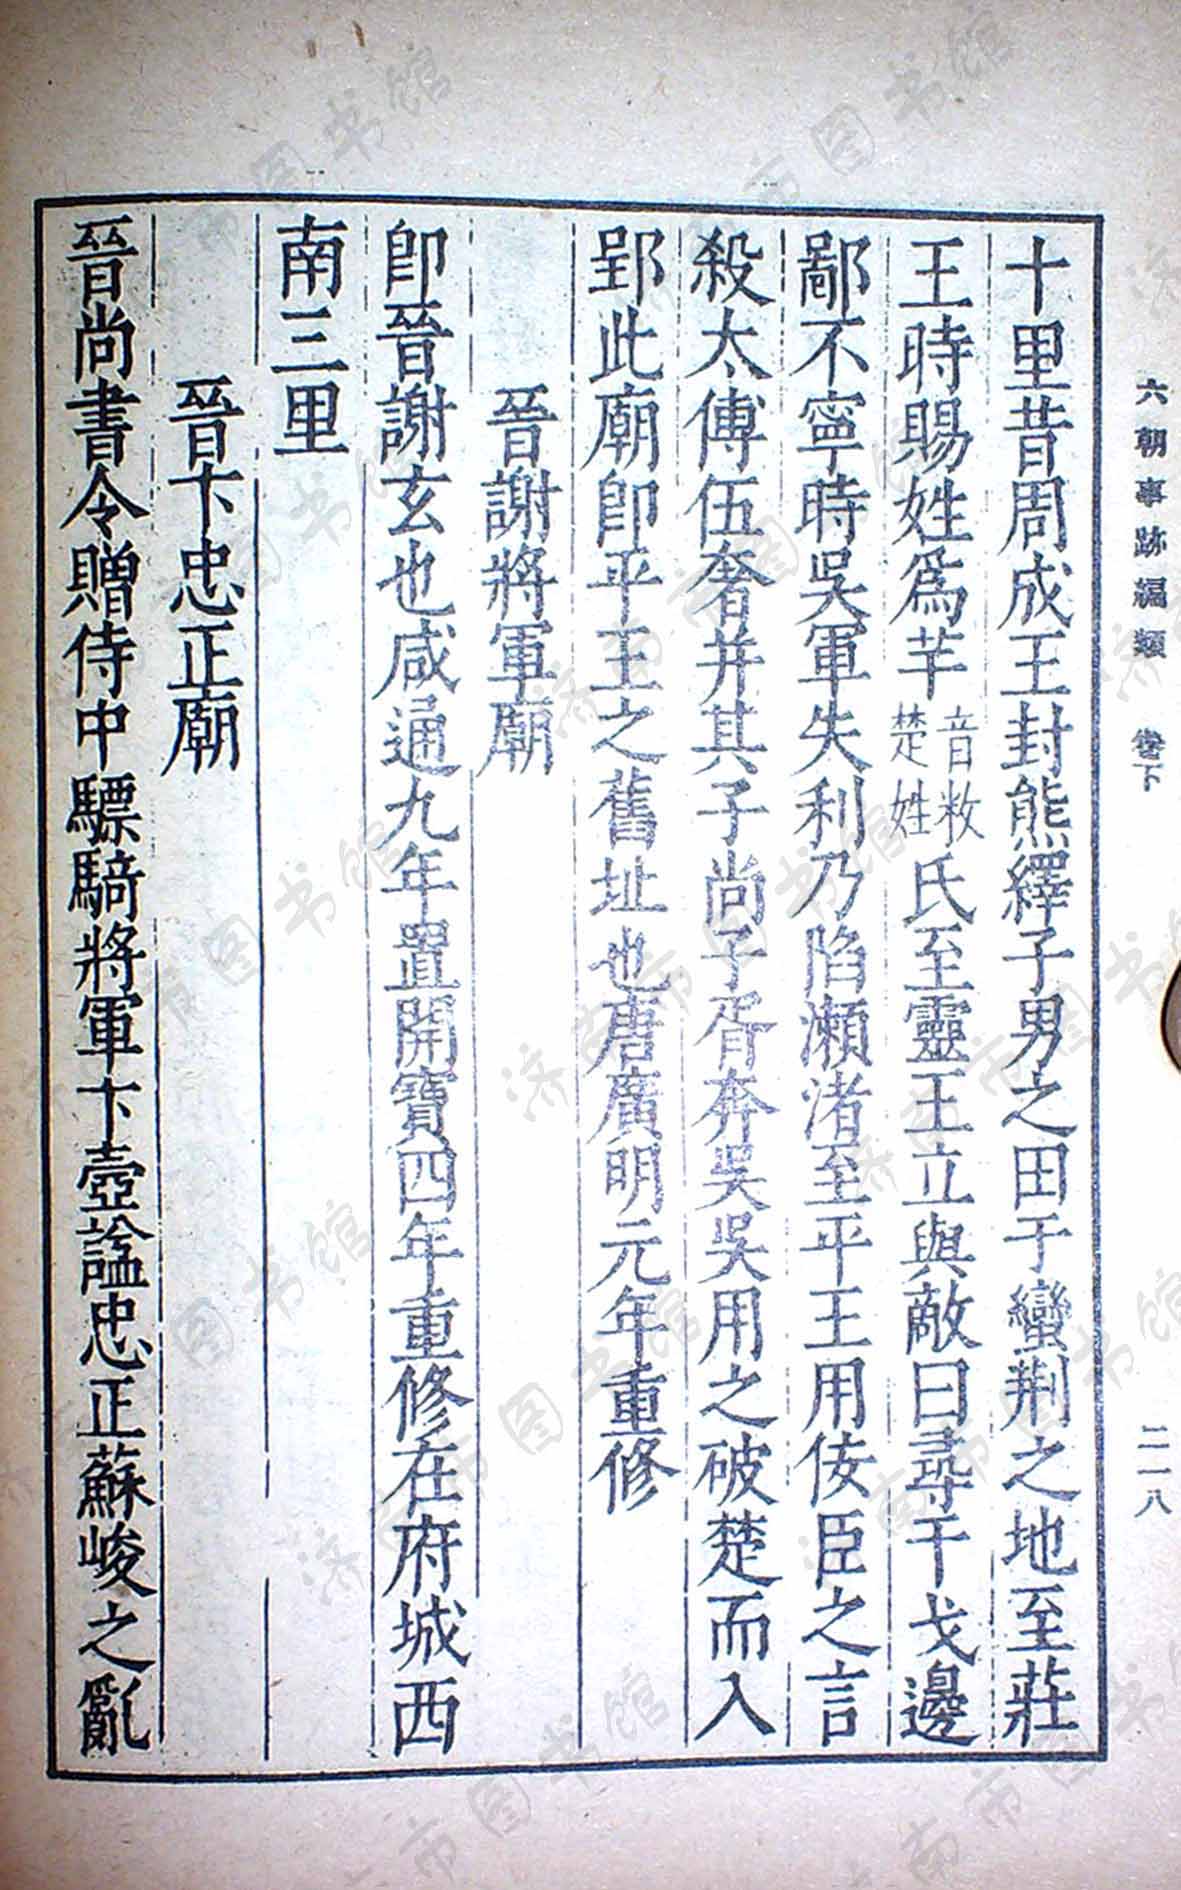 六朝事跡編類 卷下 二一八
十里昔周成王封熊繹子男之田于蠻荆之地至莊
王時賜姓爲芉音敉楚姓氏至靈王立與敵曰尋干戈邊
鄢不寧時吳軍失利乃陷瀨渚至平王用佞臣之言
殺太傅伍奢并其子尚子胥奔吳吳用之破楚而入
郢此廟卽平王之舊址也唐廣明元年重修
晉謝將軍廟
卽晉謝玄也咸通九年置開寶四年重修在府城西
南三里
晉卞忠正廟
晉尚書令贈侍中驃騎將軍卞壼謚忠正蘇峻之亂
济南市图书馆